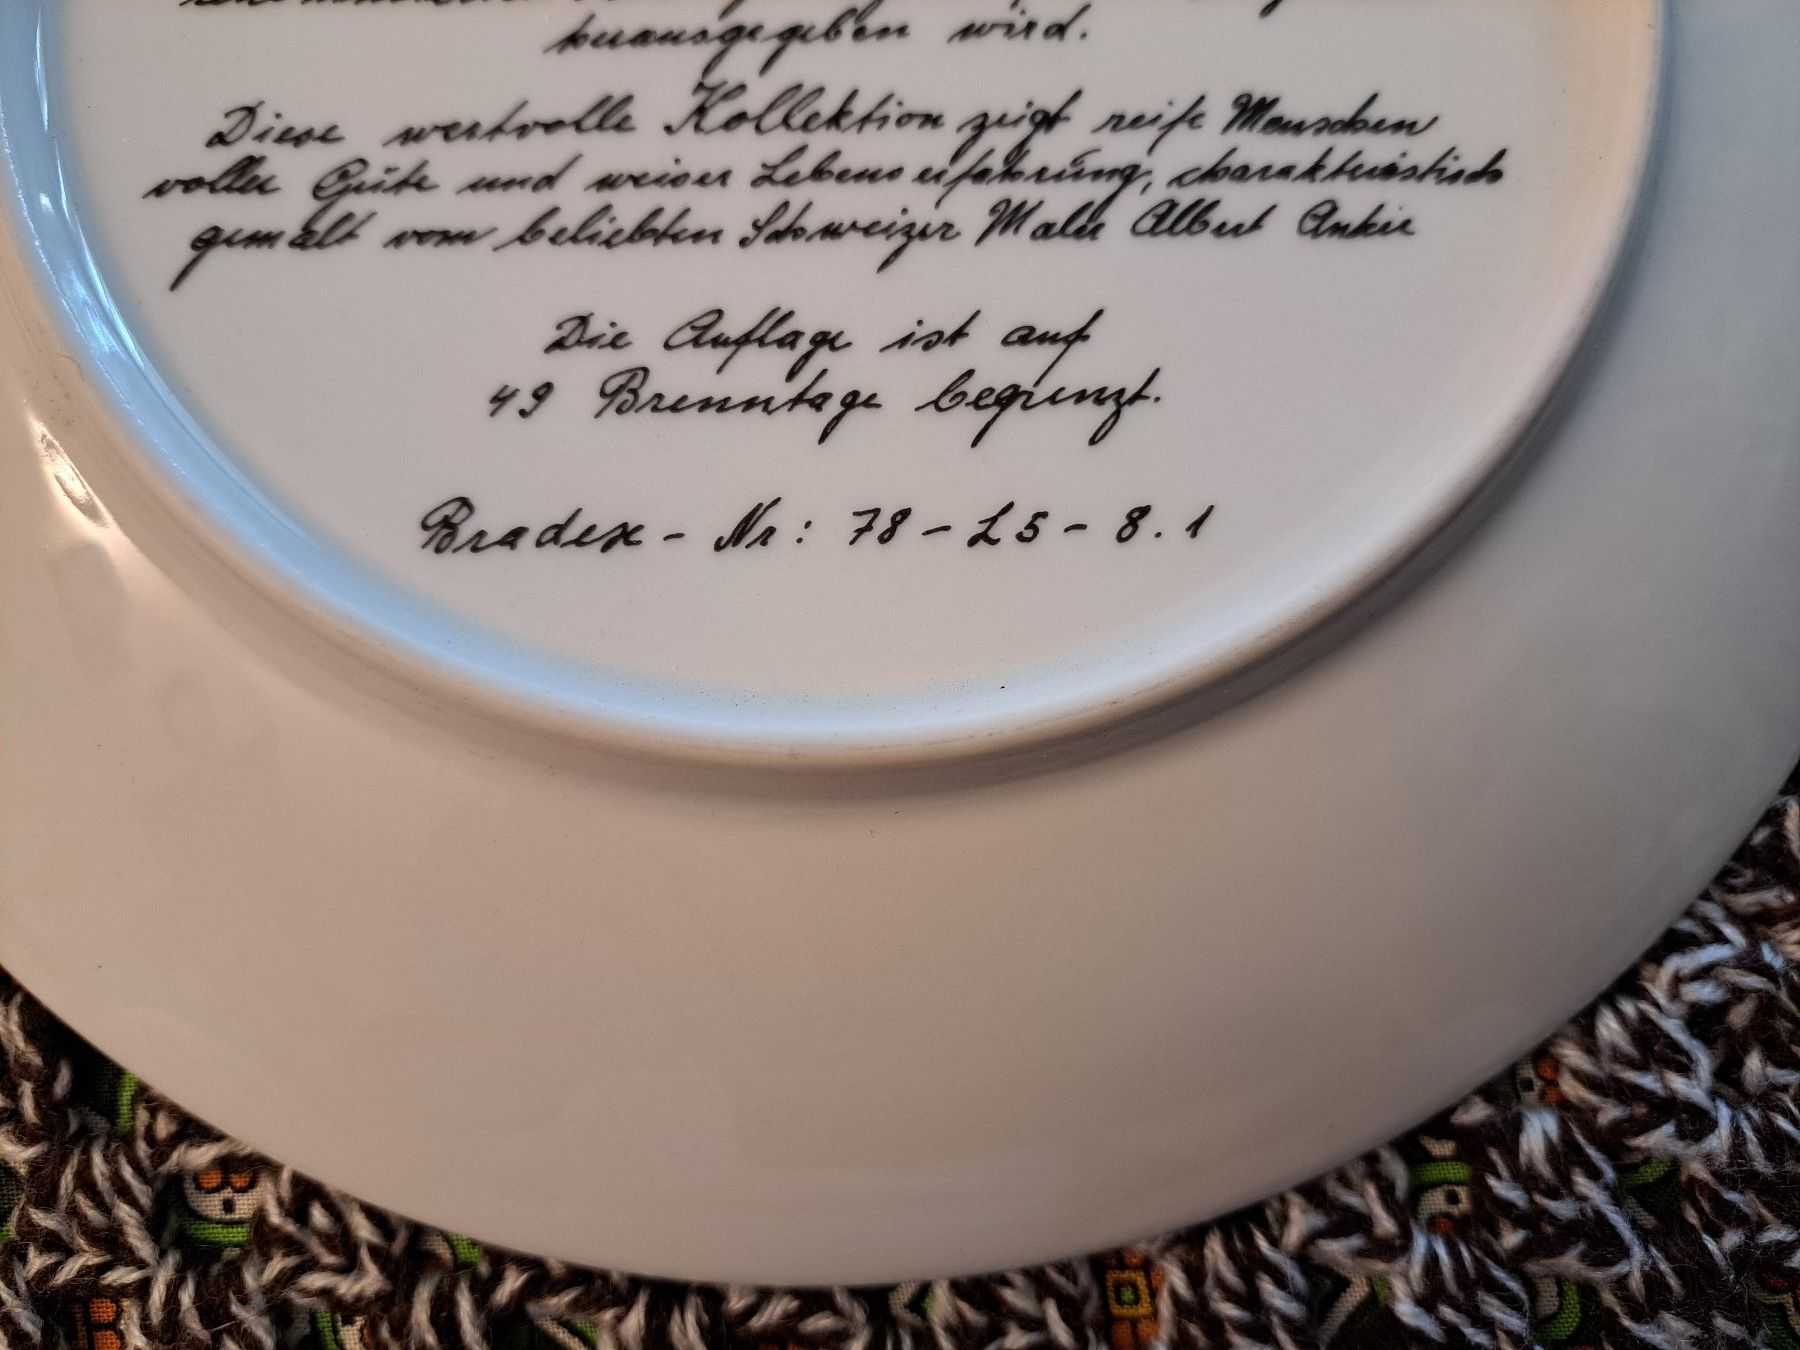 herausgegeben wird.
Diese wertvolle Kollektion zeigt reife Menschen
voller Güte und weiser Lebenserfahrung, charakteristisch
gemalt vom beliebten Schweizer Maler Albert Anker
Die Auflage ist auf
49 Brenntage begrenzt.
Bradex - Nr: 78 - L5 - 8.1